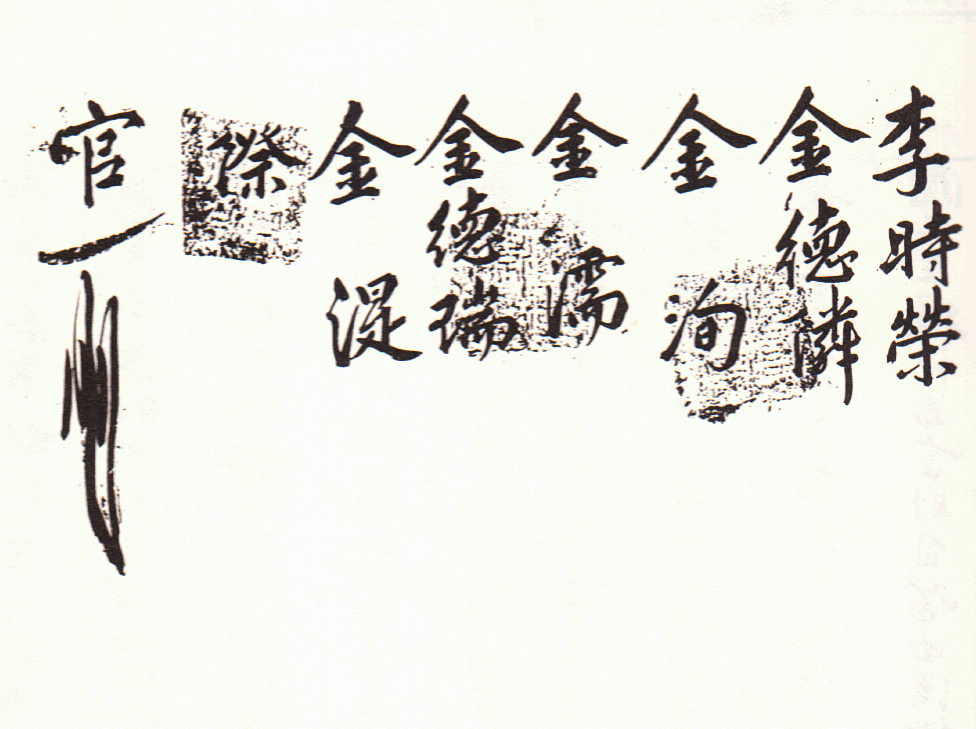 李時榮
金德憐
金洵
金濡
金德瑞
金湜
際
官